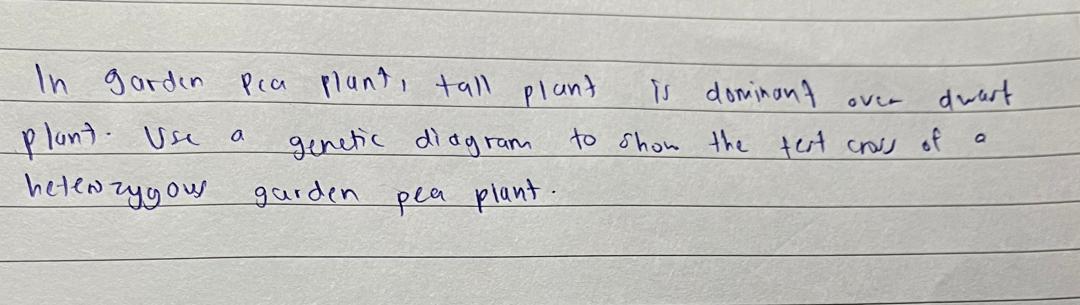 In garden pea plant, tall plant is dominant over dwarf
plant. Use a genetic diagram to show the test cross of a
heterozygous garden pea plant.